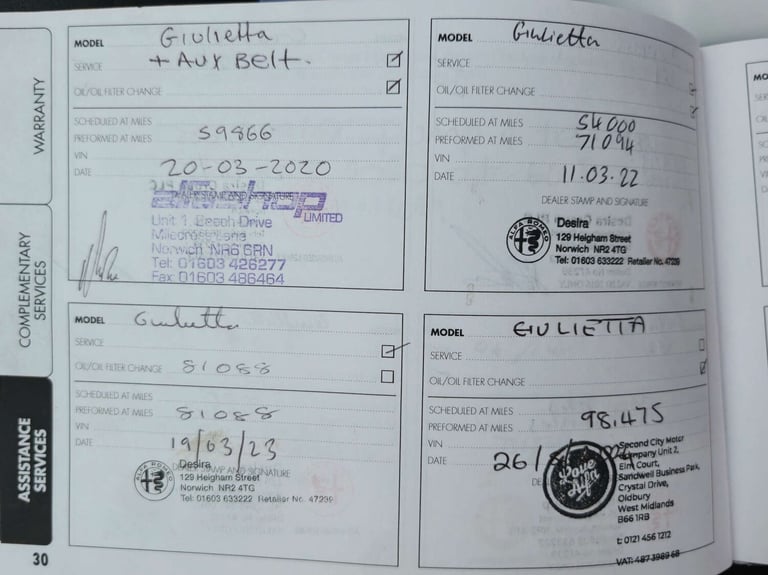 WARRANTY
COMPLEMENTARY
SERVICES
ASSISTANCE
SERVICES
30
MODEL Giulietta
SERVICE + AUX Belt.
OIL/OIL FILTER CHANGE
SCHEDULED AT MILES
PREFORMED AT MILES 59866
VIN
DATE 20-03-2020
DEALER STAMP AND SIGNATURE
LIMITED
Unit 1, Beech Drive
Norwich NR6 6RN
Tel: 01603 426277
Fax: 01603 486464
MODEL Giulietta
SERVICE
OIL/OIL FILTER CHANGE
SCHEDULED AT MILES 54000
PREFORMED AT MILES 71094
VIN
DATE 11.03.22
DEALER STAMP AND SIGNATURE
ALFA ROMEO
Desira
129 Heigham Street
Norwich NR2 4TG
Tel: 01603 633222 Retailer No. 47239
MODEL Giulietta
SERVICE
OIL/OIL FILTER CHANGE 81088
SCHEDULED AT MILES
PREFORMED AT MILES 81088
VIN
DATE 19/03/23
DEALER STAMP AND SIGNATURE
ALFA ROMEO
Desira
129 Heigham Street
Norwich NR2 4TG
Tel: 01603 633222 Retailer No. 47239
MODEL GIULIETTA
SERVICE
OIL/OIL FILTER CHANGE
SCHEDULED AT MILES
PREFORMED AT MILES 98,475
VIN
DATE 26/
Second City Motor
Company Unit 2,
Elm Court,
Sandwell Business Park,
Crystal Drive,
Oldbury
West Midlands
B66 1RB
t: 0121 456 1212
VAT: 487 3989 68